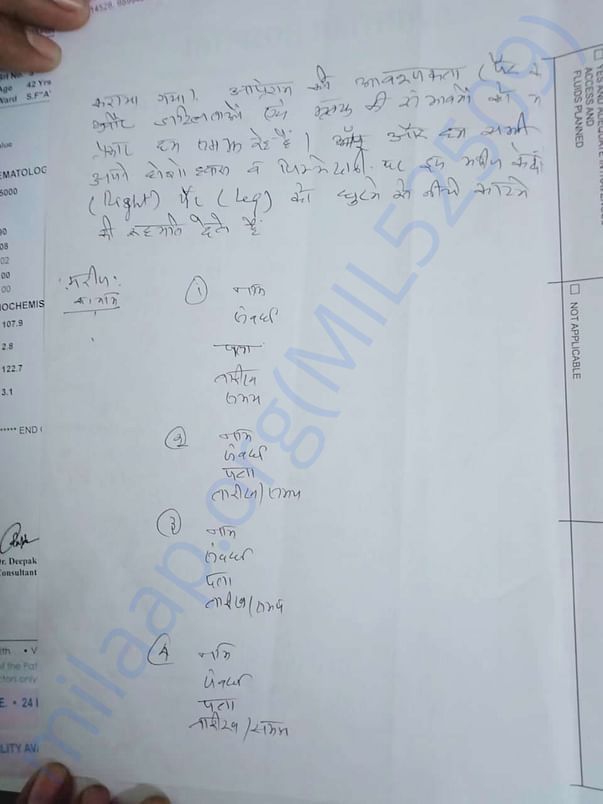 कराया गया। आपरेशन की आवश्यकता (पैर
और जटिलताओं एवं मृत्यु की संभावनाओं को
लेकर हम समझ रहे हैं। और हम सभी
अपने होशो हवास व जिम्मेदारी पर इस मरीज के
(Right) पैर (Leg) को घुटने से नीचे काटने
की सहमति देते हैं
मरीज:
का नाम
① नाम
संबंध
पता
तारीख
समय
② नाम
संबंध
पता
तारीख/समय
③ नाम
संबंध
पता
तारीख/समय
④ नाम
संबंध
पता
तारीख/समय
YES AND
ACCESS AND
FLUIDS PLANNED
NOT APPLICABLE
Age 42 Yrs
Ward S.F"A"
EMATOLOG
5000
90
08
02
00
00
IOCHEMIS
107.9
2.8
122.7
3.1
***** END
Dr. Deepak
Consultant
of the Pat
E. • 24
LITY AVA
milaap.org(MIL52509)